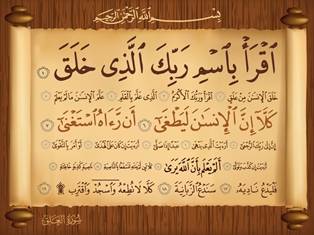 بِسْمِ ٱللَّهِ ٱلرَّحْمَٰنِ ٱلرَّحِيمِ
ٱقْرَأْ بِٱسْمِ رَبِّكَ ٱلَّذِى خَلَقَ ١
خَلَقَ ٱلْإِنسَٰنَ مِنْ عَلَقٍ ٢ ٱقْرَأْ وَرَبُّكَ ٱلْأَكْرَمُ ٣ ٱلَّذِى عَلَّمَ بِٱلْقَلَمِ ٤ عَلَّمَ ٱلْإِنسَٰنَ مَا لَمْ يَعْلَمْ ٥
كَلَّآ إِنَّ ٱلْإِنسَٰنَ لَيَطْغَىٰٓ ٦ أَن رَّءَاهُ ٱسْتَغْنَىٰٓ ٧
إِنَّ إِلَىٰ رَبِّكَ ٱلرُّجْعَىٰٓ ٨ أَرَءَيْتَ ٱلَّذِى يَنْهَىٰ ٩ عَبْدًا إِذَا صَلَّىٰٓ ١٠ أَرَءَيْتَ إِن كَانَ عَلَى ٱلْهُدَىٰٓ ١١ أَوْ أَمَرَ بِٱلتَّقْوَىٰٓ ١٢
أَرَءَيْتَ إِن كَذَّبَ وَتَوَلَّىٰٓ ١٣ أَلَمْ يَعْلَم بِأَنَّ ٱللَّهَ يَرَىٰ ١٤ كَلَّا لَئِن لَّمْ يَنتَهِ لَنَسْفَعًۢا بِٱلنَّاصِيَةِ ١٥ نَاصِيَةٍ كَٰذِبَةٍ خَاطِئَةٍ ١٦
فَلْيَدْعُ نَادِيَهُۥ ١٧ سَنَدْعُ ٱلزَّبَانِيَةَ ١٨ كَلَّا لَا تُطِعْهُ وَٱسْجُدْ وَٱقْتَرِب ۩ ١٩
سُورَةُ ٱلْعَلَقِ